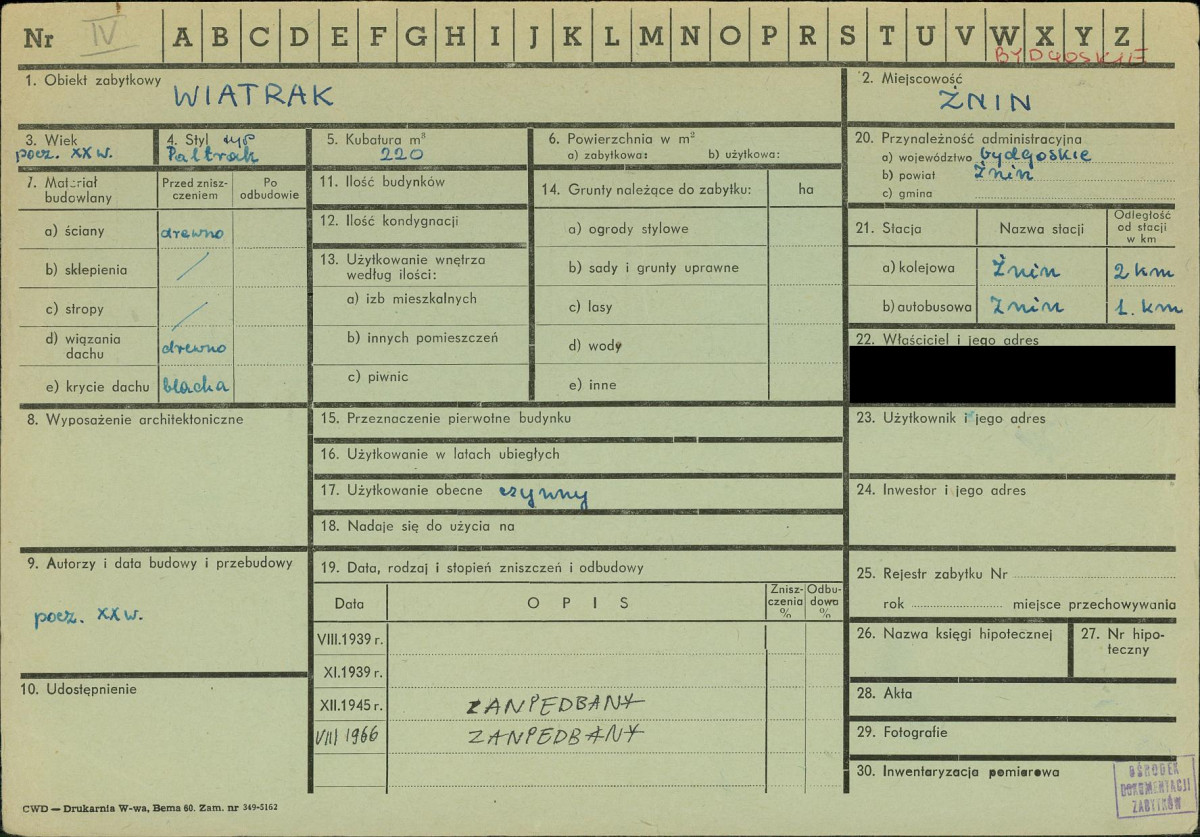 Nr IV A B C D E F G H I J K L M N O P R S T U V W X Y Z
BYDGOSKIE
1. Obiekt zabytkowy
WIATRAK
2. Miejscowość
ŻNIN
3. Wiek
pocz. XX w.
4. Styl typ
Paltrak
5. Kubatura m³
220
6. Powierzchnia w m²
a) zabytkowa: b) użytkowa:
20. Przynależność administracyjna
a) województwo bydgoskie
b) powiat Żnin
c) gmina
7. Materiał budowlany
Przed znisz-
czeniem
Po
odbudowie
a) ściany drewno
b) sklepienia /
c) stropy /
d) wiązania
dachu drewno
e) krycie dachu blacha
11. Ilość budynków
12. Ilość kondygnacji
13. Użytkowanie wnętrza
według ilości:
a) izb mieszkalnych
b) innych pomieszczeń
c) piwnic
14. Grunty należące do zabytku: ha
a) ogrody stylowe
b) sady i grunty uprawne
c) lasy
d) wody
e) inne
21. Stacja Nazwa stacji
Odległość
od stacji
w km
a) kolejowa Żnin 2 km
b) autobusowa Żnin 1. km
22. Właściciel i jego adres
8. Wyposażenie architektoniczne
15. Przeznaczenie pierwotne budynku
16. Użytkowanie w latach ubiegłych
17. Użytkowanie obecne czynny
18. Nadaje się do użycia na
23. Użytkownik i jego adres
24. Inwestor i jego adres
9. Autorzy i data budowy i przebudowy
pocz. XX w.
19. Data, rodzaj i stopień zniszczeń i odbudowy
Data OPIS
Znisz-
czenia
%
Odbu-
dowa
%
VIII.1939 r.
XI.1939 r.
XII.1945 r. ZANPEDBANY
VIII 1966 ZANPEDBANY
25. Rejestr zabytku Nr
rok miejsce przechowywania
26. Nazwa księgi hipotecznej
27. Nr hipo-
teczny
10. Udostępnienie
28. Akta
29. Fotografie
30. Inwentaryzacja pomiarowa
OŚRODEK
DOKUMENTACJI
ZABYTKÓW
CWD — Drukarnia W-wa, Bema 60. Zam. nr 349-5162